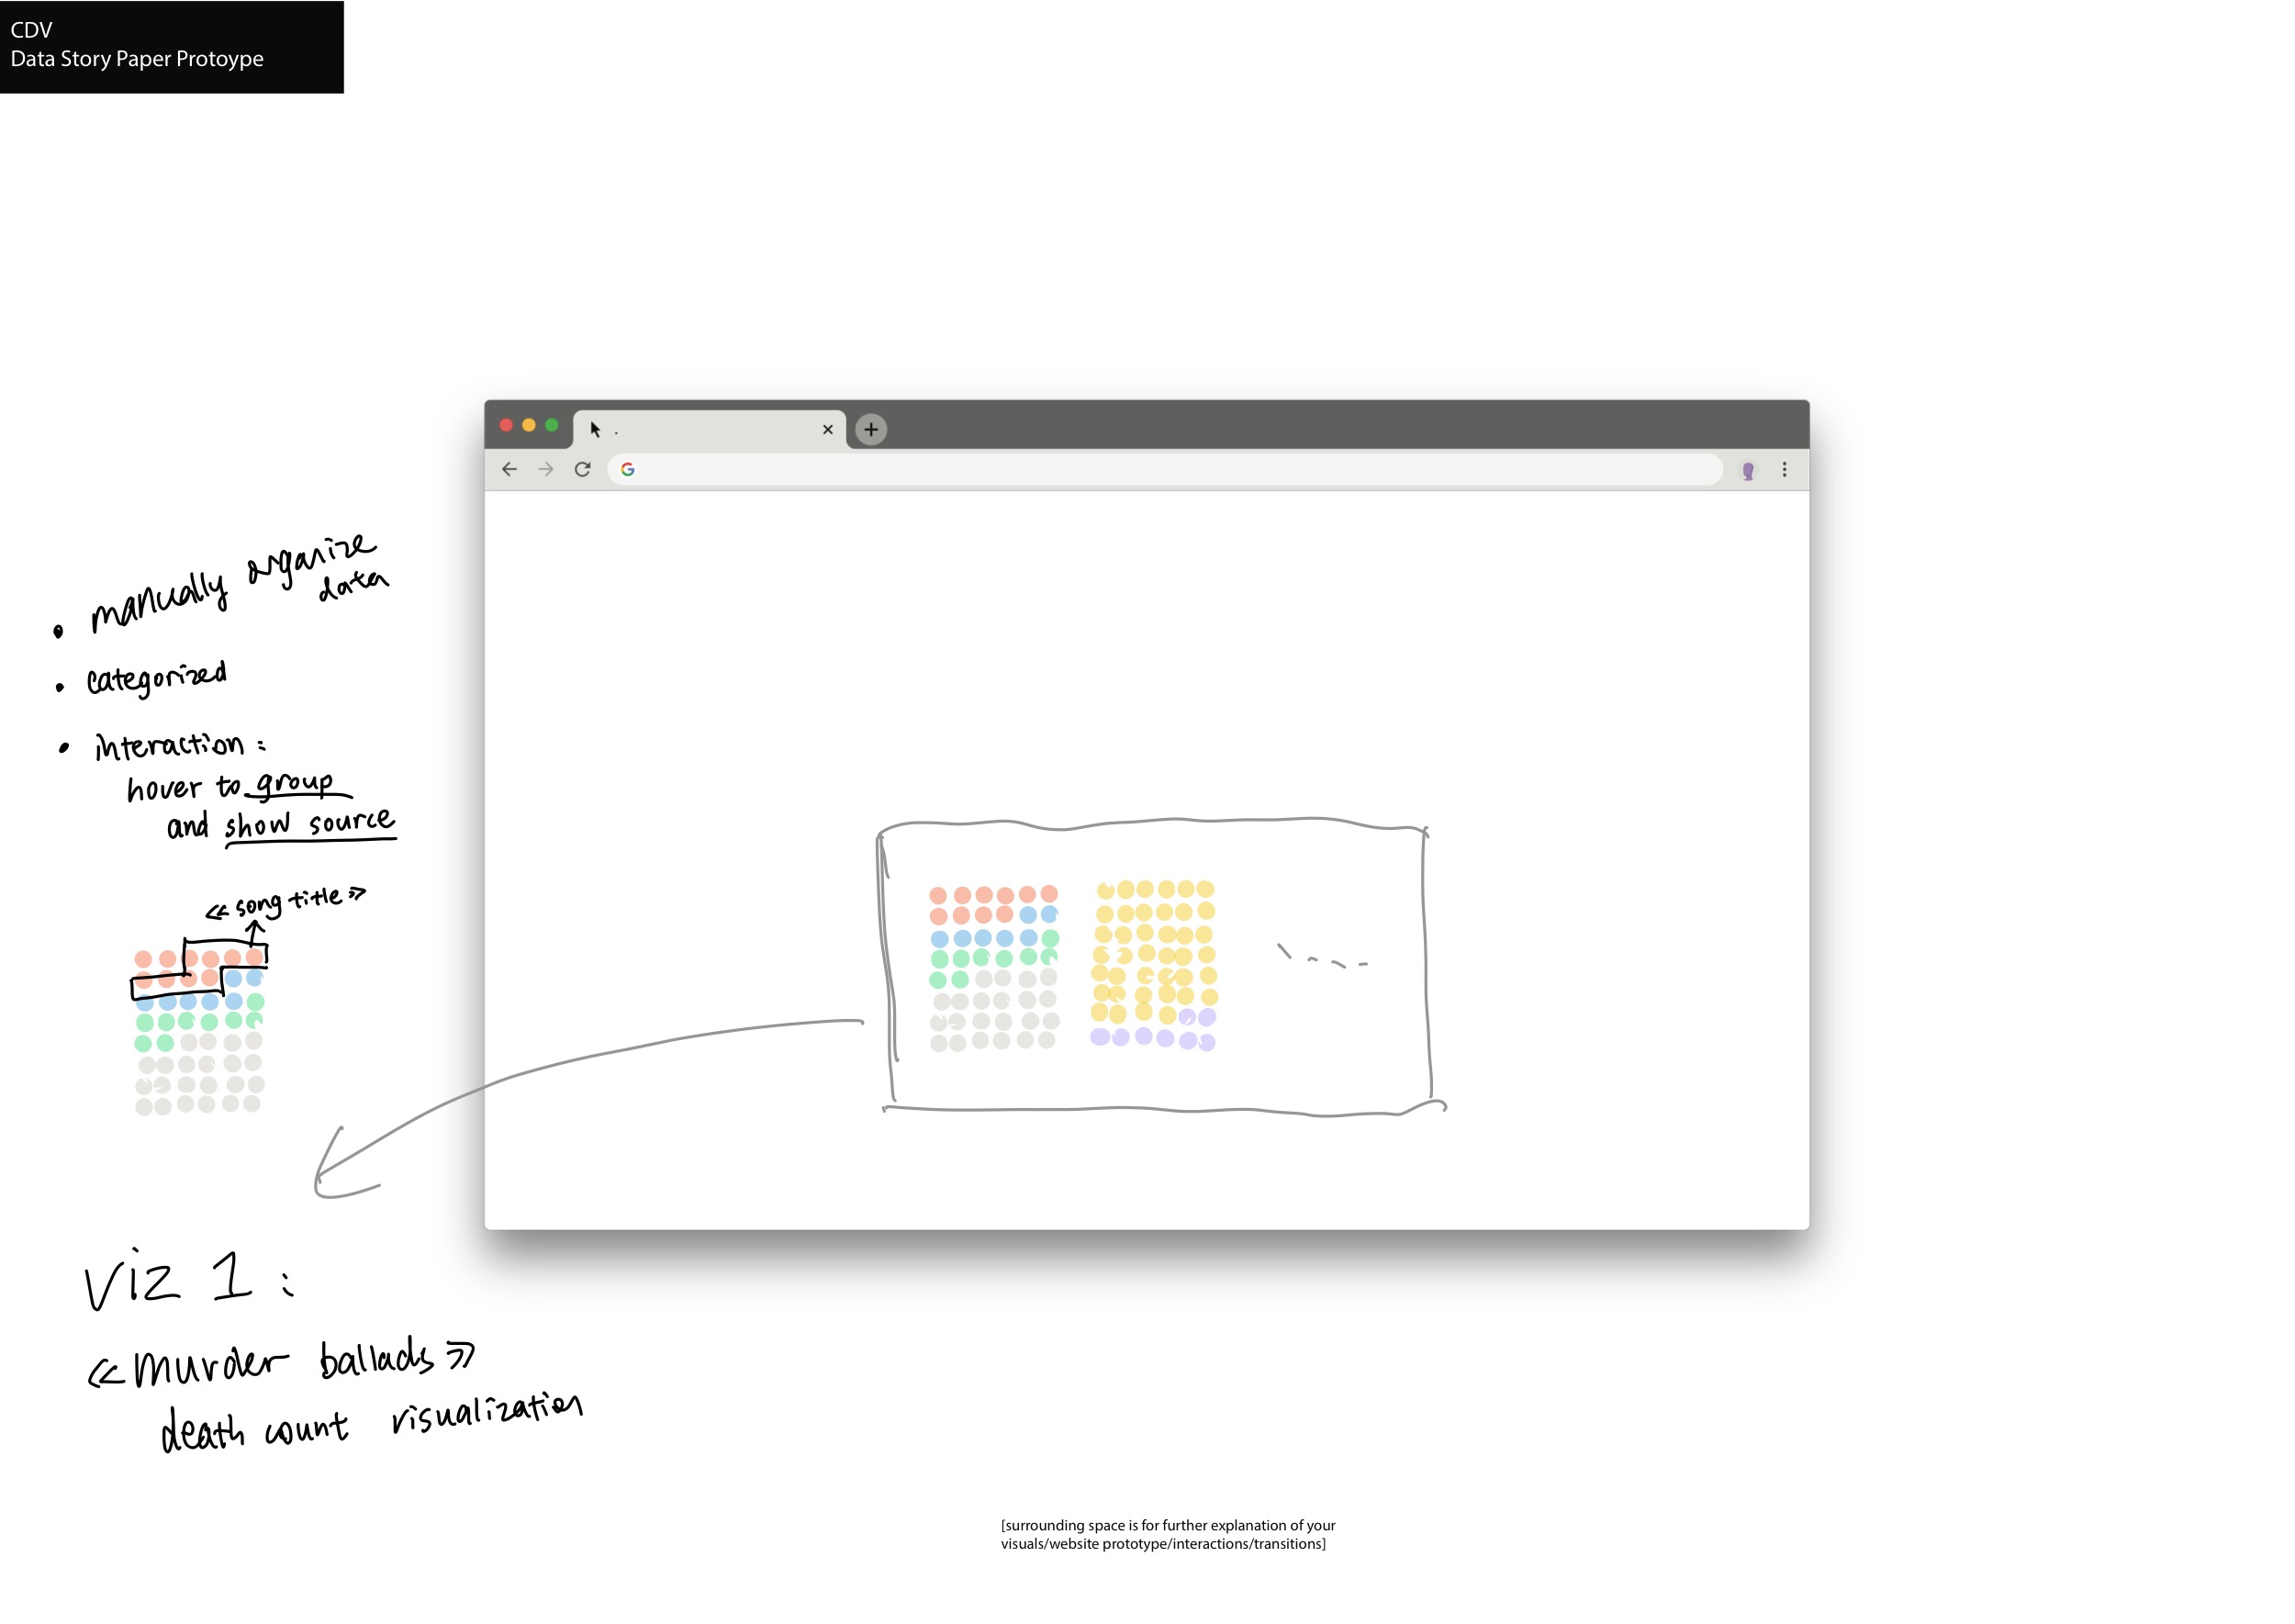 CDV
Data Story Paper Protoype
• manually organize
data
• categorized
• interaction :
hover to group
and show source
≪ song title ≫
Viz 1 :
≪ Murder ballads ≫
death count visualization
[surrounding space is for further explanation of your
visuals/website prototype/interactions/transitions]